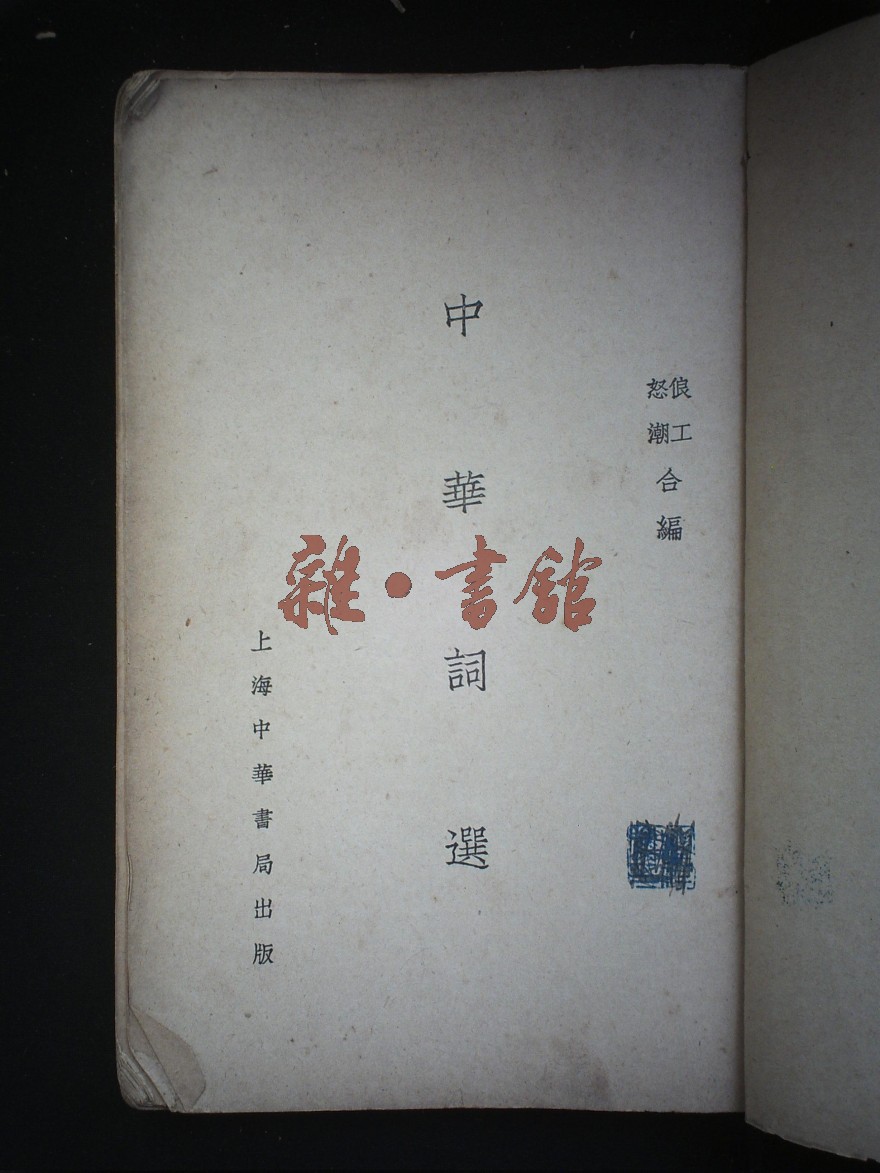 俍工
怒潮
合編
中華詞選
上海中華書局出版
雜·書館